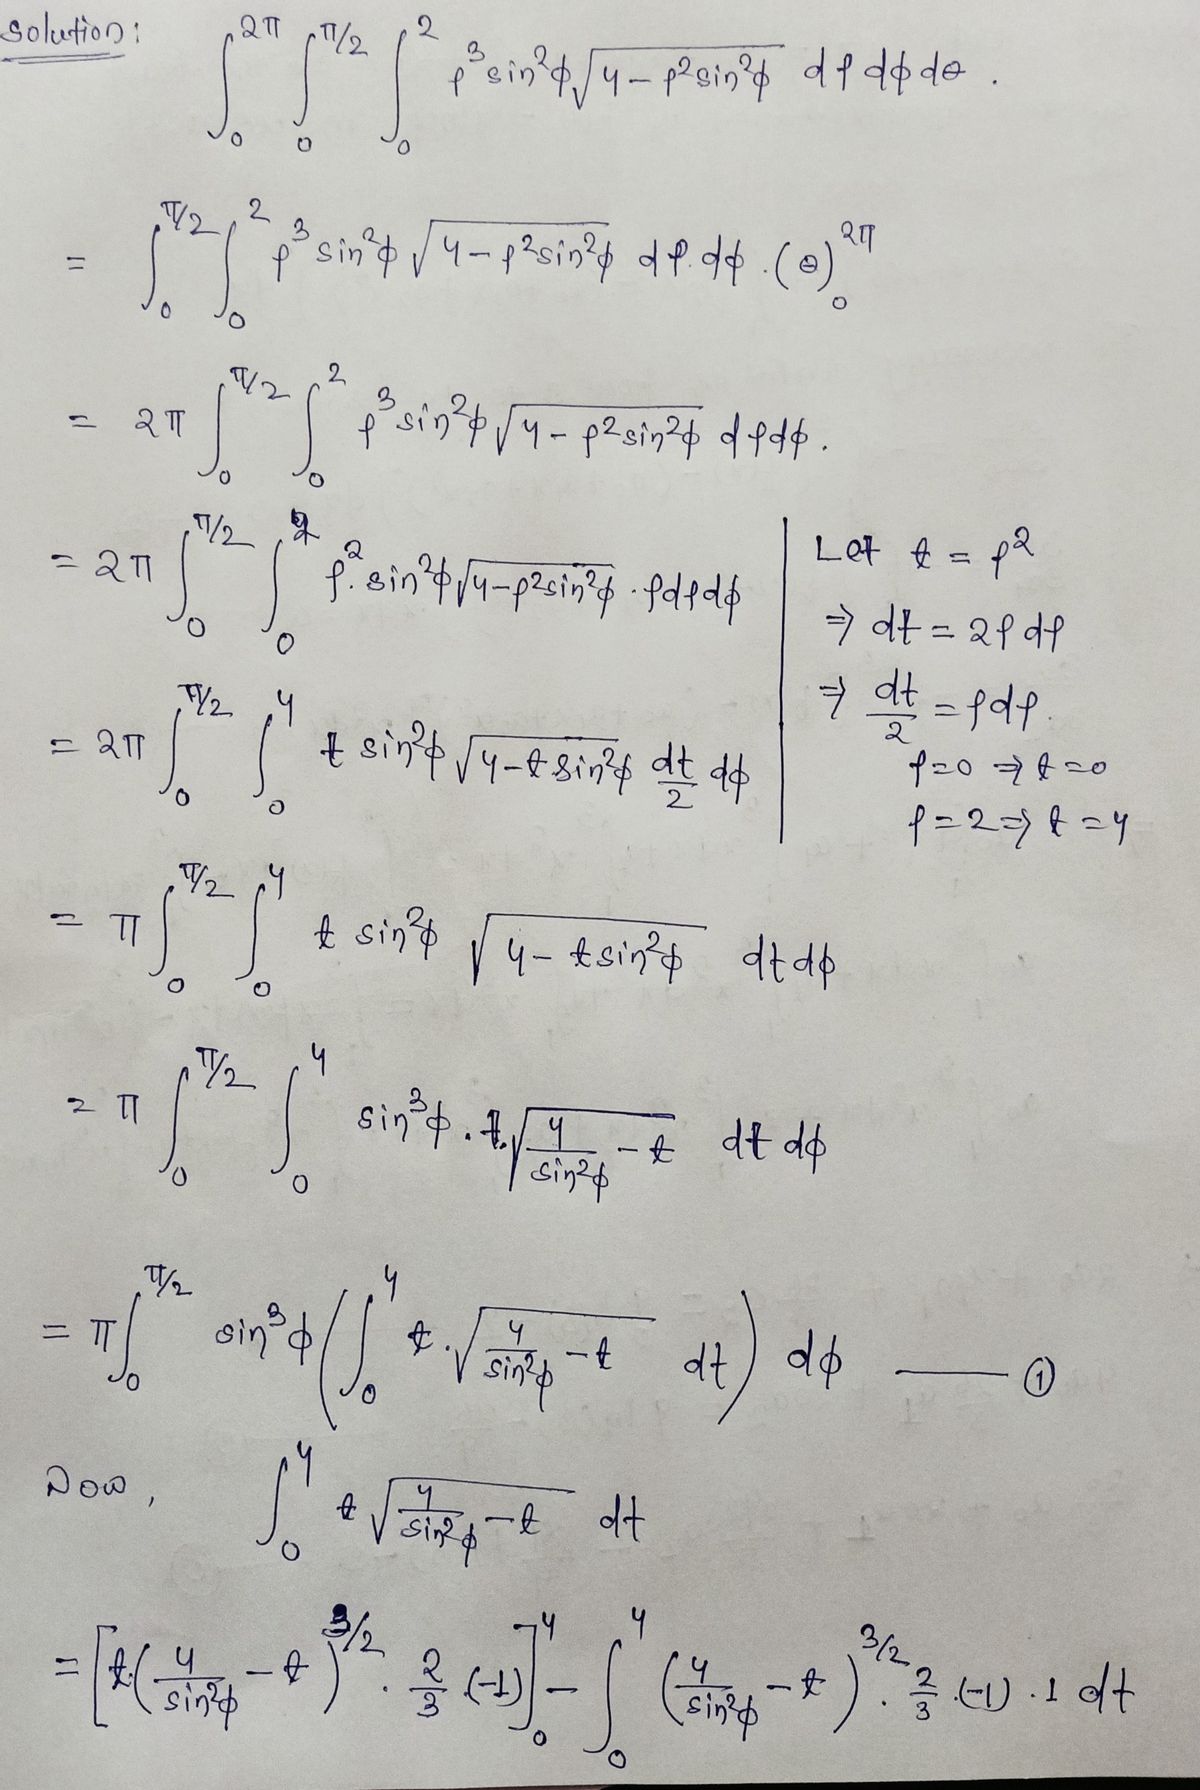 Solution: ∫₀^{2π} ∫₀^{π/2} ∫₀^{2} ρ³ sin²φ √(4 − ρ² sin²φ) dρ dφ dθ .
= ∫₀^{π/2} ∫₀^{2} ρ³ sin²φ √(4 − ρ² sin²φ) dρ. dφ . (θ)₀^{2π}
= 2π ∫₀^{π/2} ∫₀^{2} ρ³ sin²φ √(4 − ρ² sin²φ) dρ dφ .
= 2π ∫₀^{π/2} ∫₀^{2} ρ². sin²φ √(4 − ρ² sin²φ) · ρ dρ dφ
Let t = ρ²
⇒ dt = 2ρ dρ
⇒ dt/2 = ρ dρ.
ρ = 0 ⇒ t = 0
ρ = 2 ⇒ t = 4
= 2π ∫₀^{π/2} ∫₀^{4} t sin²φ √(4 − t sin²φ) dt/2 dφ
= π ∫₀^{π/2} ∫₀^{4} t sin²φ √(4 − t sin²φ) dt dφ
= π ∫₀^{π/2} ∫₀^{4} sin³φ . t. √(4/sin²φ − t) dt dφ
= π ∫₀^{π/2} sin³φ ( ∫₀^{4} t. √(4/sin²φ − t) dt ) dφ —— ①
Now, ∫₀^{4} t √(4/sin²φ − t) dt
= [ t. (4/sin²φ − t)^{3/2} . 2/3 .(-1) ]₀^{4} − ∫₀^{4} (4/sin²φ − t)^{3/2} . 2/3 .(-1) . 1 dt